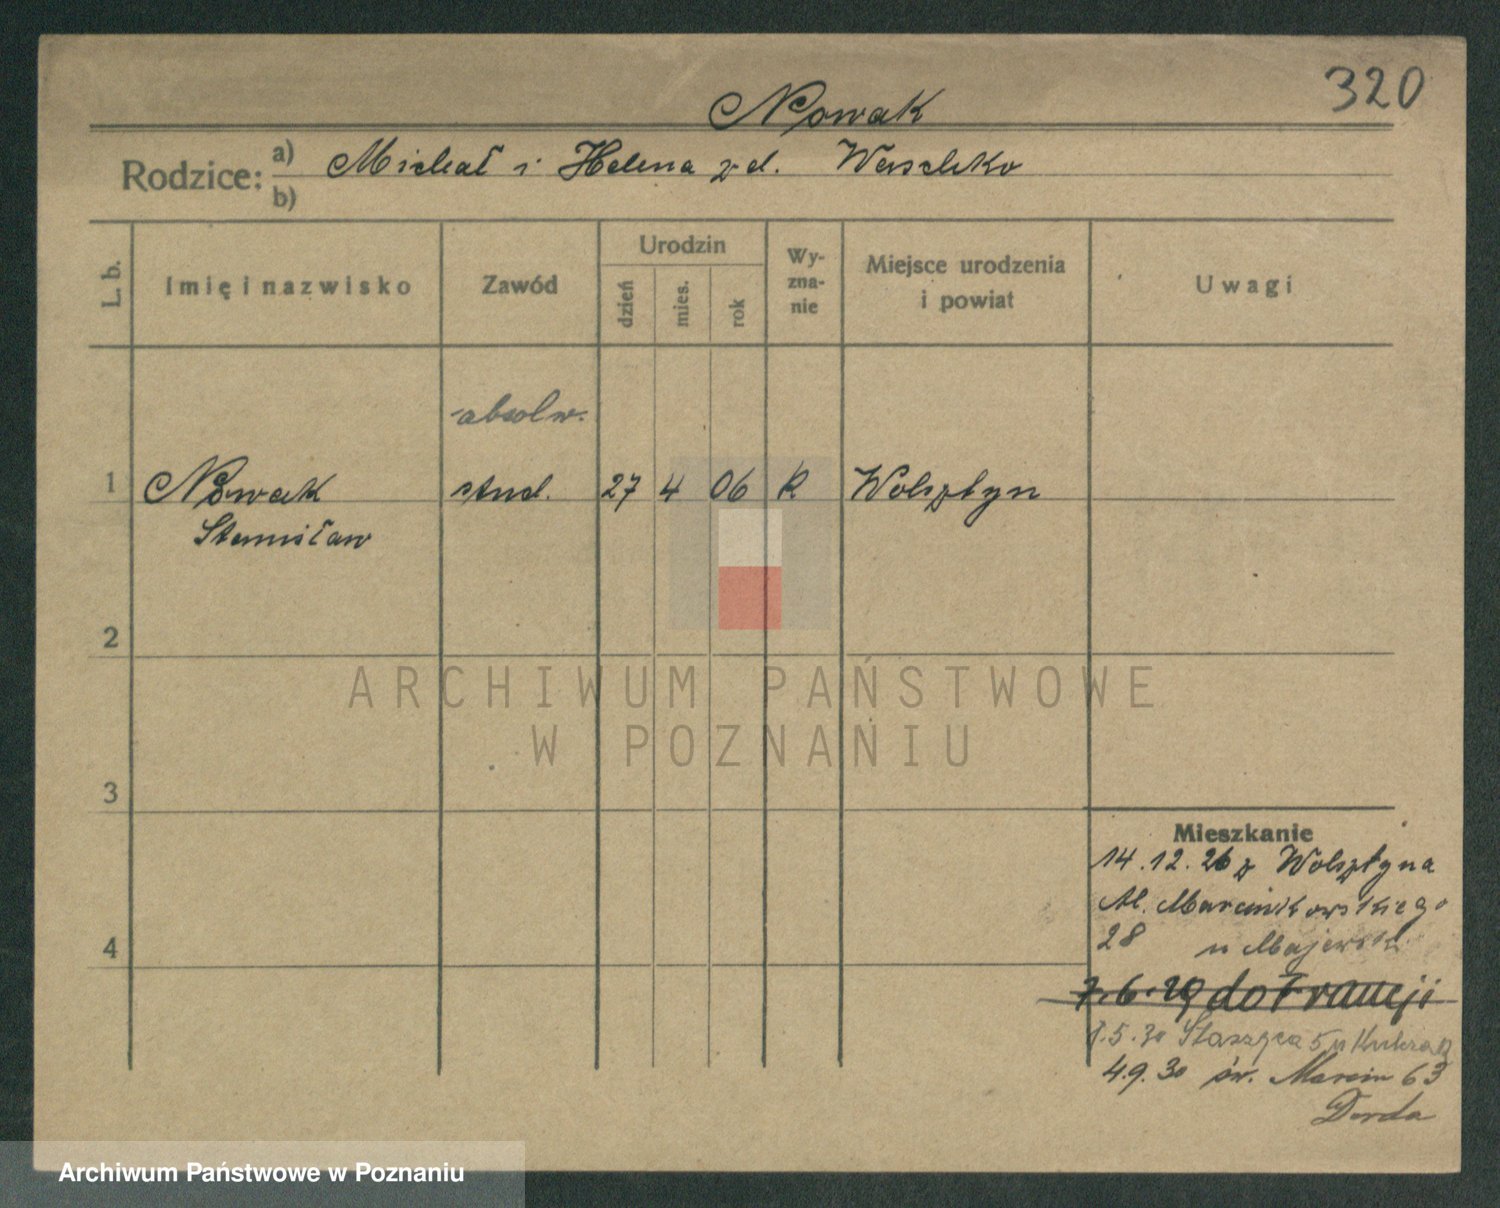 320
Nowak
Rodzice: a) Michał i Helena z d.
b)
L. b. Imię i nazwisko Zawód Urodzin dzień mies. rok Wyznanie Miejsce urodzenia i powiat Uwagi
absolw.
1 Nowak stud. 27 4 06 R Wolsztyn
Stanisław
2
ARCHIWUM PAŃSTWOWE
W POZNANIU
3
Mieszkanie
14.12.26 z Wolsztyna
Al. Marcinkowskiego
4
28 u Majewsk.
7.6.29 do Francji
1.5.30 Staszyca 5 u
4.9.30 św. Marcin 63
Derda
Archiwum Państwowe w Poznaniu